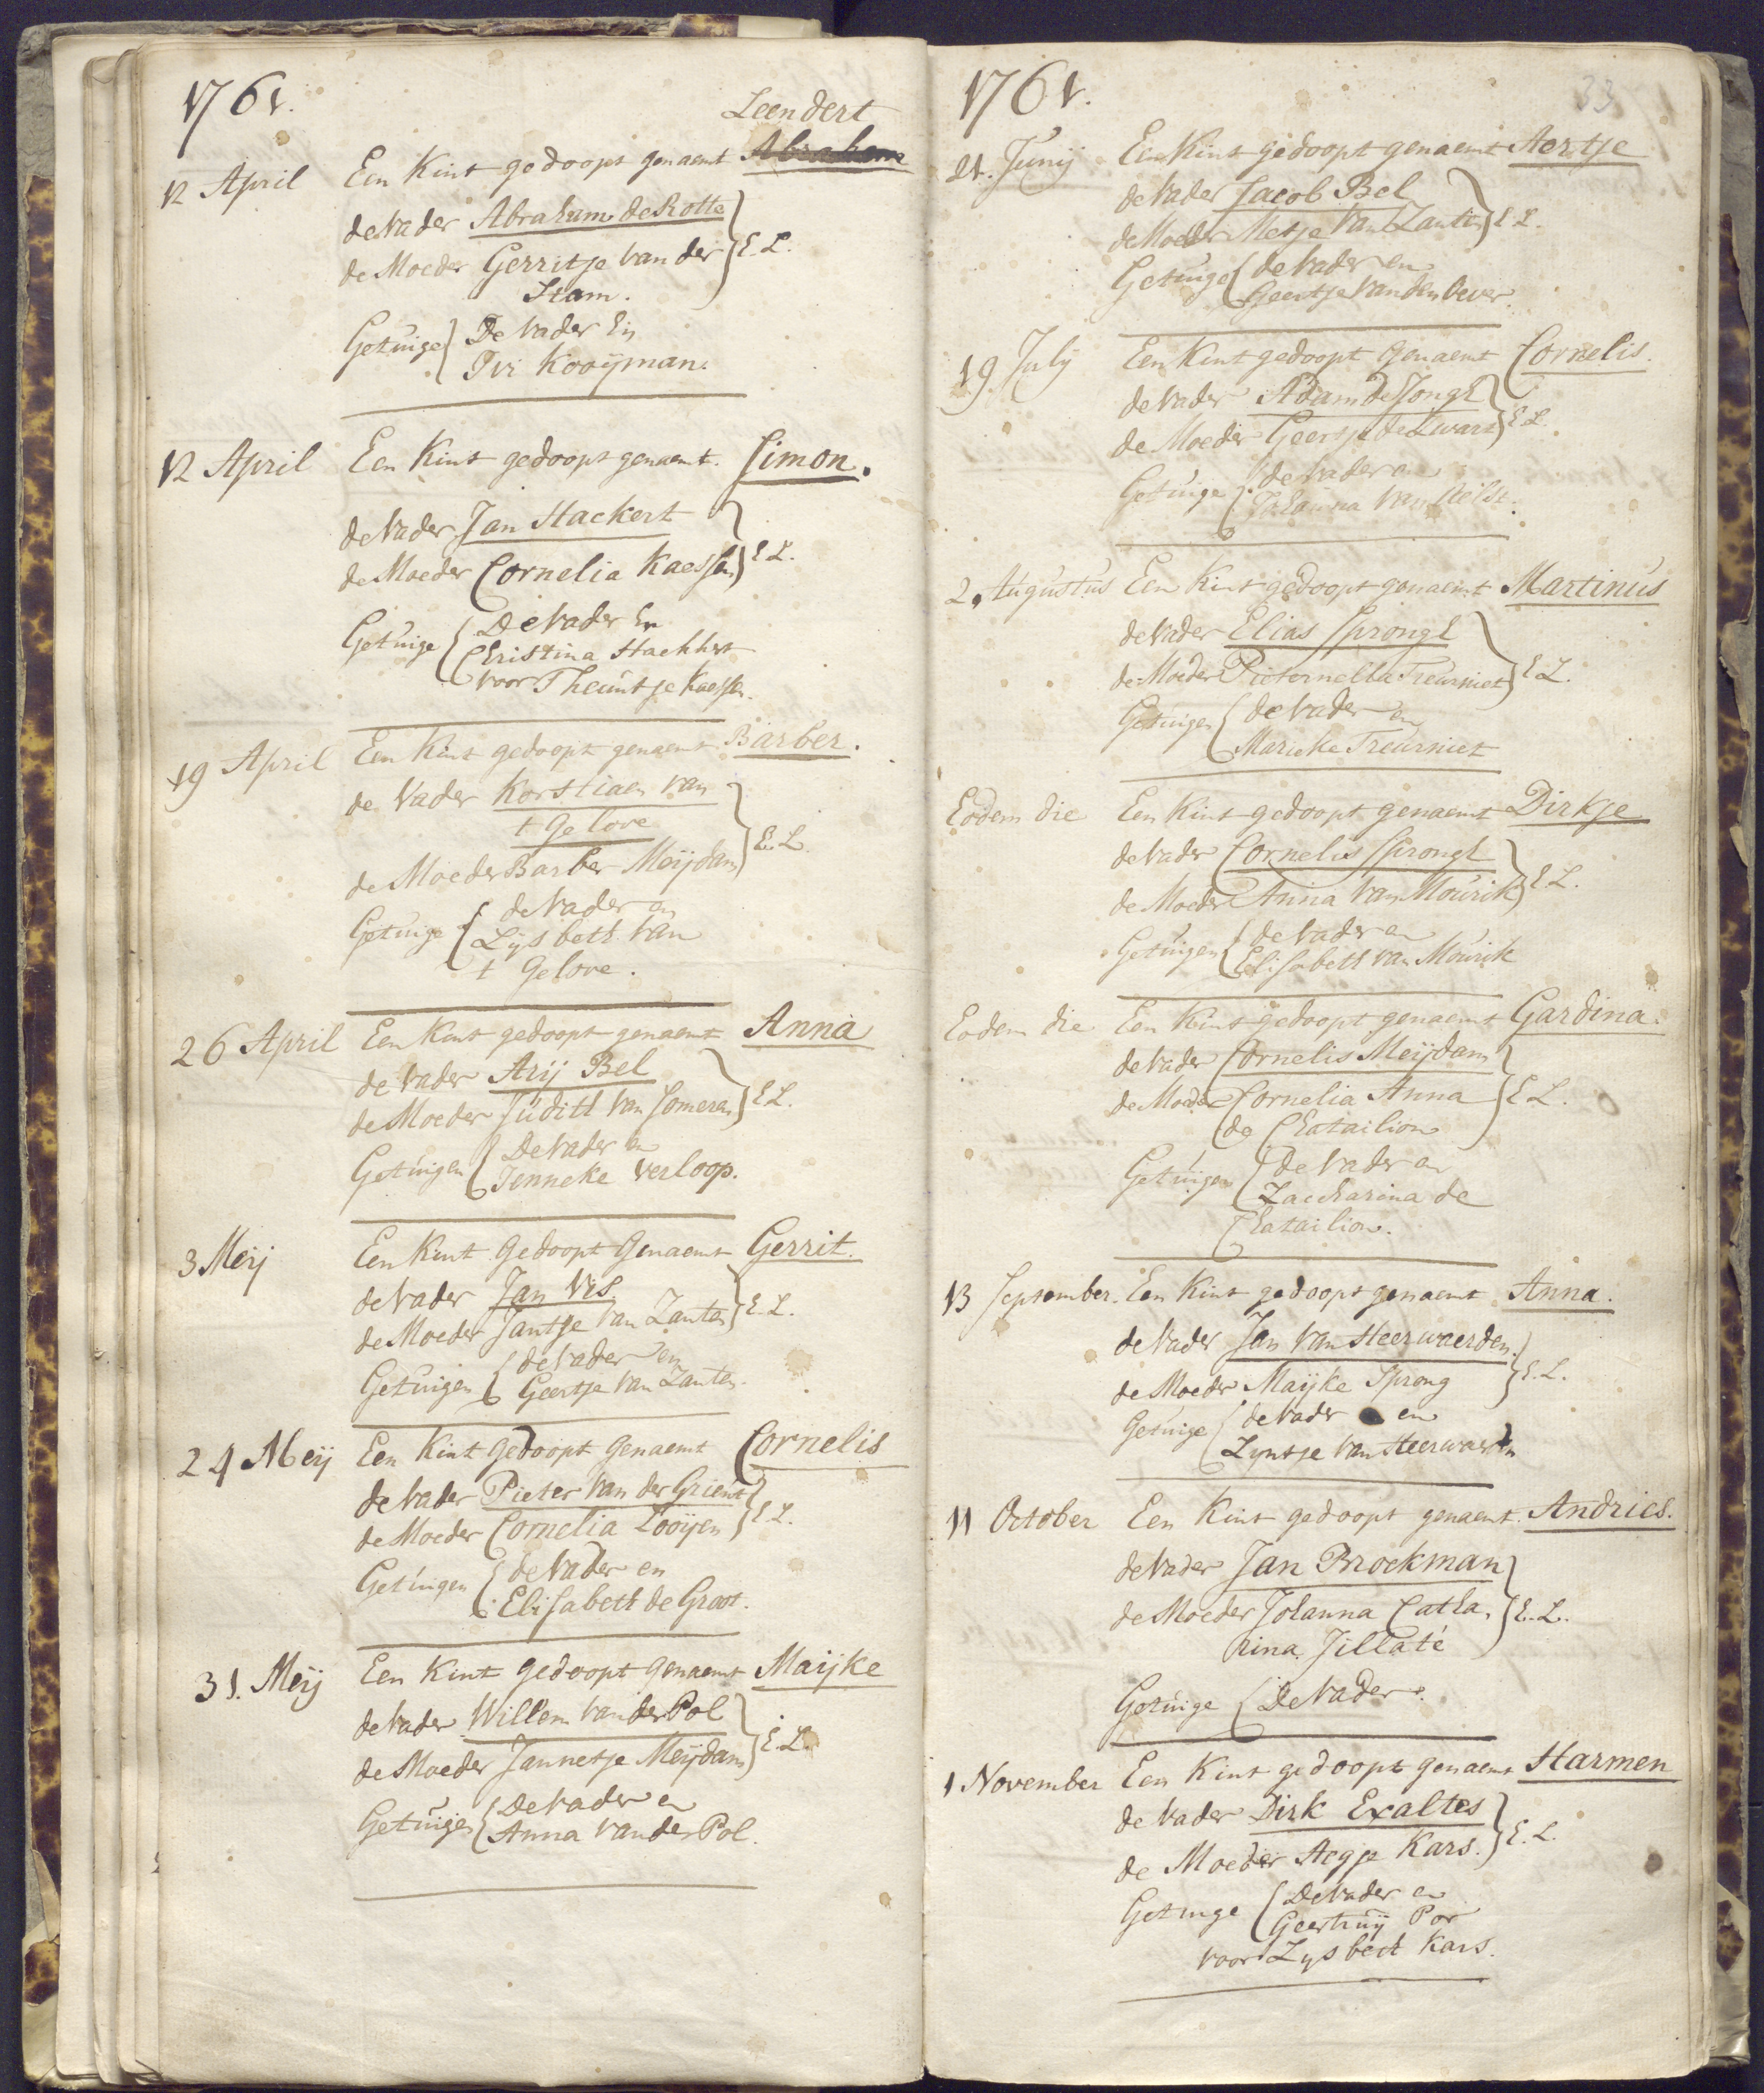 1761.
Leendert
12 April Een Kint gedoopt genaemt Abraham
de Vader Abraham de Rotte
de Moeder Gerritje van der } E. L.
Stam.
Getuige } De Vader En
Ivi Kooijman.
12 April Een Kint gedoopt genaemt. Simon.
de Vader Jan Hackert
de Moeder Cornelia Kaessen } E L.
Getuige { De Vader En
Christina Hackhert
voor Theuntje Kaessen.
19 April Een Kint gedoopt genaemt Barber.
de Vader Korstiaen van
t Gelove
de Moeder Barber Meijdam } E. L.
Getuige { de Vader en
Lijsbeth van
t Gelove.
26 April Een Kint gedoopt genaemt Anna
de Vader Arij Bel
de Moeder Judith van Someren } E L.
Getuigen { De Vader en
Jenneke Verloop.
3 Meij Een Kint Gedoopt Genaemt Gerrit.
de Vader Jan Vis
de Moeder Jantje van Zanten } E. L.
Getuigen { de Vader en
Geertje van Zanten.
24 Meij Een Kint Gedoopt Genaemt Cornelis
de Vader Pieter van der Grient
de Moeder Cornelia Looijen } E L.
Getuigen { de Vader en
Elisabeth de Groot.
31. Meij Een Kint gedoopt Genaemt Maijke
de Vader Willem van der Pol
de Moeder Jannetje Meijdam } E. L.
Getuigen { De Vader en
Anna van der Pol.
1761.
33
21. Junij Een Kint gedoopt genaemt Aertje
de Vader Jacob Bel
de Moeder Metje van Zanten } E L.
Getuige { de Vader en
Geertje van den Oever.
19 July Een Kint gedoopt Genaemt Cornelis.
de Vader Adam de Jongh
de Moeder Geertje de Zwart } E L.
Getuige { de Vader en
Johanna van
2. Augustus Een Kint gedoopt genaemt Martinus
de Vader Elias Sprongh
de Moeder Pieternella Treurniet } E L.
Getuigen { de Vader en
Marieke Treurniet
Eodem die Een Kint gedoopt genaemt Dirkje
de Vader Cornelis Sprongh
de Moeder Anna van Mourik } E. L.
Getuigen { de Vader en
Elisabeth van Mourik
Eodem die Een Kint gedoopt genaemt Gardina.
de Vader Cornelis Meijdam
de Moeder Cornelia Anna } E L.
de Chatailion
Getuigen { de Vader en
Zaccharina de
Chatailion.
13 September. Een Kint gedoopt genaemt Anna.
de Vader Jan van Heerwaerden.
de Moeder Maijke Sprong } E. L.
Getuige { de Vader en
Lijntje van Heerwaerden
11 October Een Kint gedoopt genaemt. Andries.
de Vader Jan Broekman
de Moeder Johanna Catha, } E. L.
rina Jillaté
Getuige { De Vader e.
1 November Een Kint gedoopt genaemt Harmen
de Vader Dirk Exaltes
de Moeder Aegje Kars. } E. L.
Getuige { De Vader en
Geertruij Por
voor Lysbeth Kars.